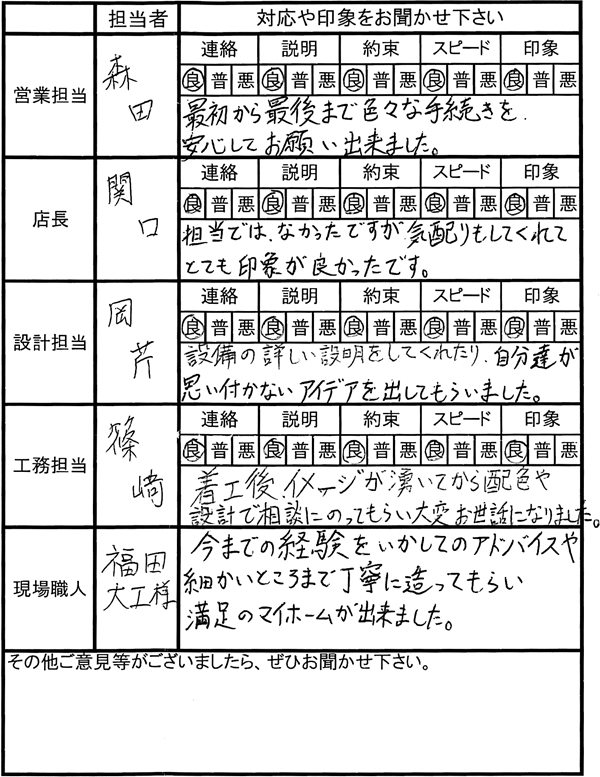 担当者 対応や印象をお聞かせ下さい
営業担当 森田
連絡 説明 約束 スピード 印象
良 普 悪 良 普 悪 良 普 悪 良 普 悪 良 普 悪
最初から最後まで色々な手続きを、
安心してお願い出来ました。
店長 関口
連絡 説明 約束 スピード 印象
良 普 悪 良 普 悪 良 普 悪 良 普 悪 良 普 悪
担当では、なかったですが気配りもしてくれて
とても印象が良かったです。
設計担当 岡芹
連絡 説明 約束 スピード 印象
良 普 悪 良 普 悪 良 普 悪 良 普 悪 良 普 悪
設備の詳しい説明をしてくれたり、自分達が
思い付かないアイデアを出してもらいました。
工務担当 篠﨑
連絡 説明 約束 スピード 印象
良 普 悪 良 普 悪 良 普 悪 良 普 悪 良 普 悪
着工後、イメージが湧いてから配色や
設計で相談にのってもらい大変お世話になりました。
現場職人 福田大工様
今までの経験をいかしてのアドバイスや
細かいところまで丁寧に造ってもらい
満足のマイホームが出来ました。
その他ご意見等がございましたら、ぜひお聞かせ下さい。